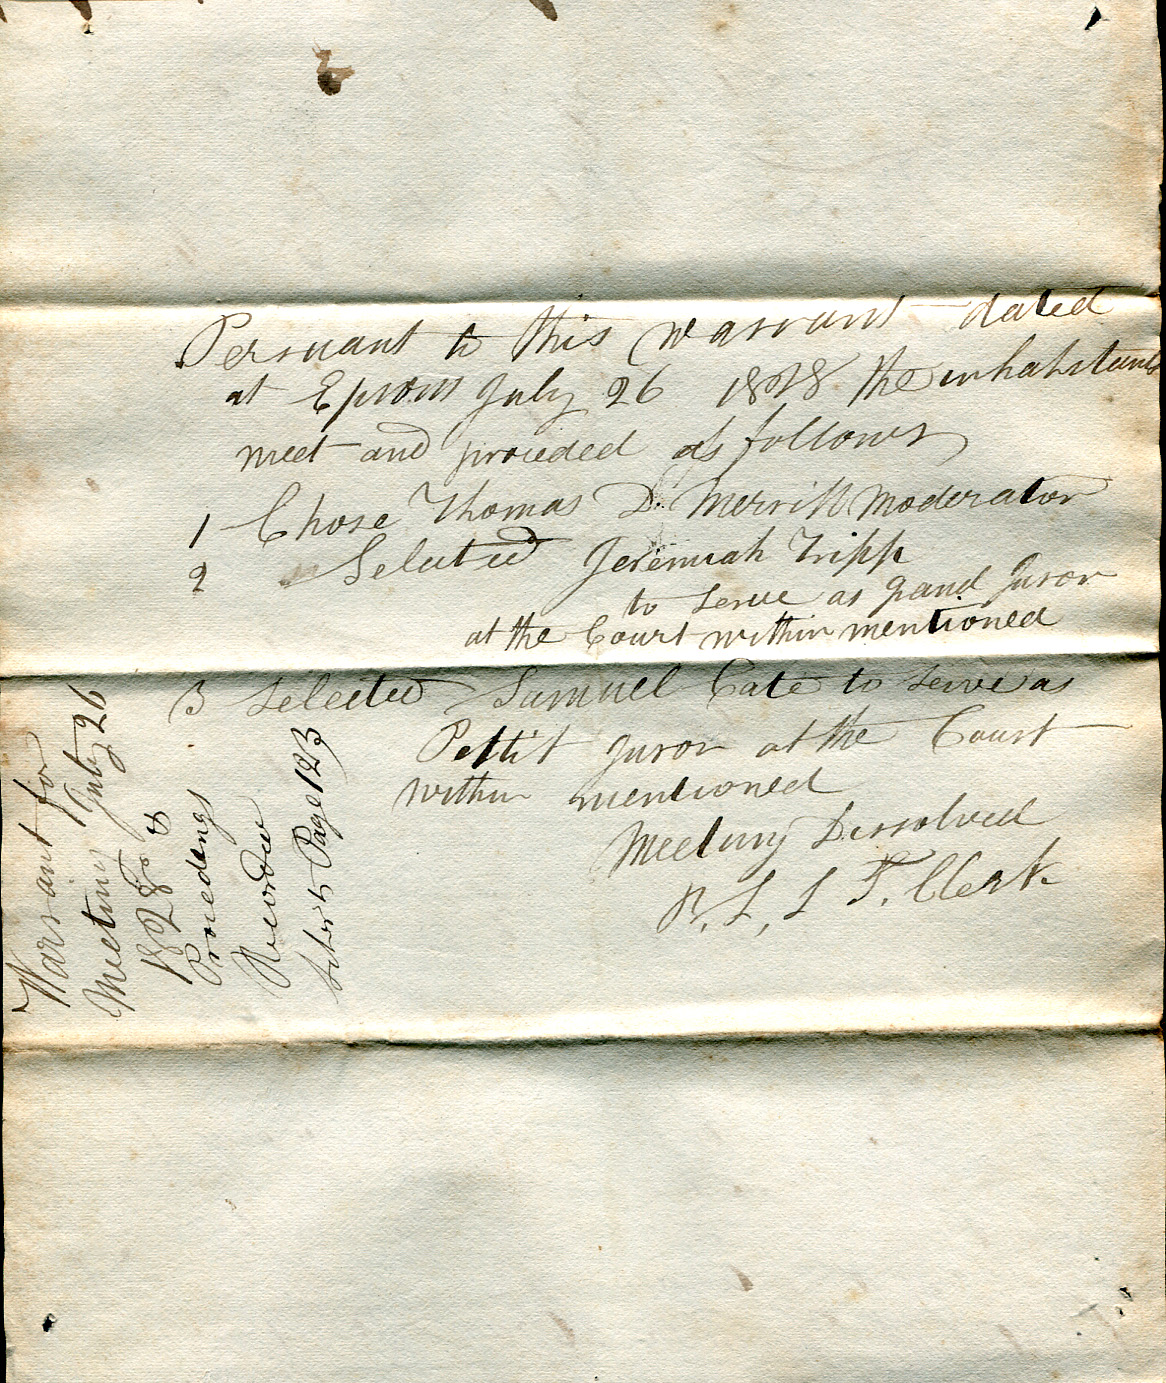 Persuant to this warrant dated
at Epsom July 26 1828 the inhabitants
meet and proceded as follows
1 Chose Thomas D. Merrill Moderator
2 Selected Jeremiah Tripp
to serve as grand Juror
at the Court within mentioned
3 selected Samuel Cate to serve as
Pettit Juror at the Court
within mentioned
Meeting Dissolved
L, T. Clerk
Warrant for
Meeting July 26
1828 &
Procedings
Recorded
Page 123